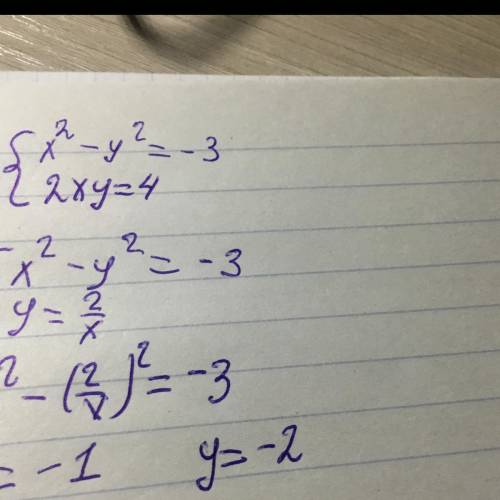 {x² - y² = -3
2xy = 4
x² - y² = -3
y = 2/x
² - (2/x)² = -3
= -1 y = -2